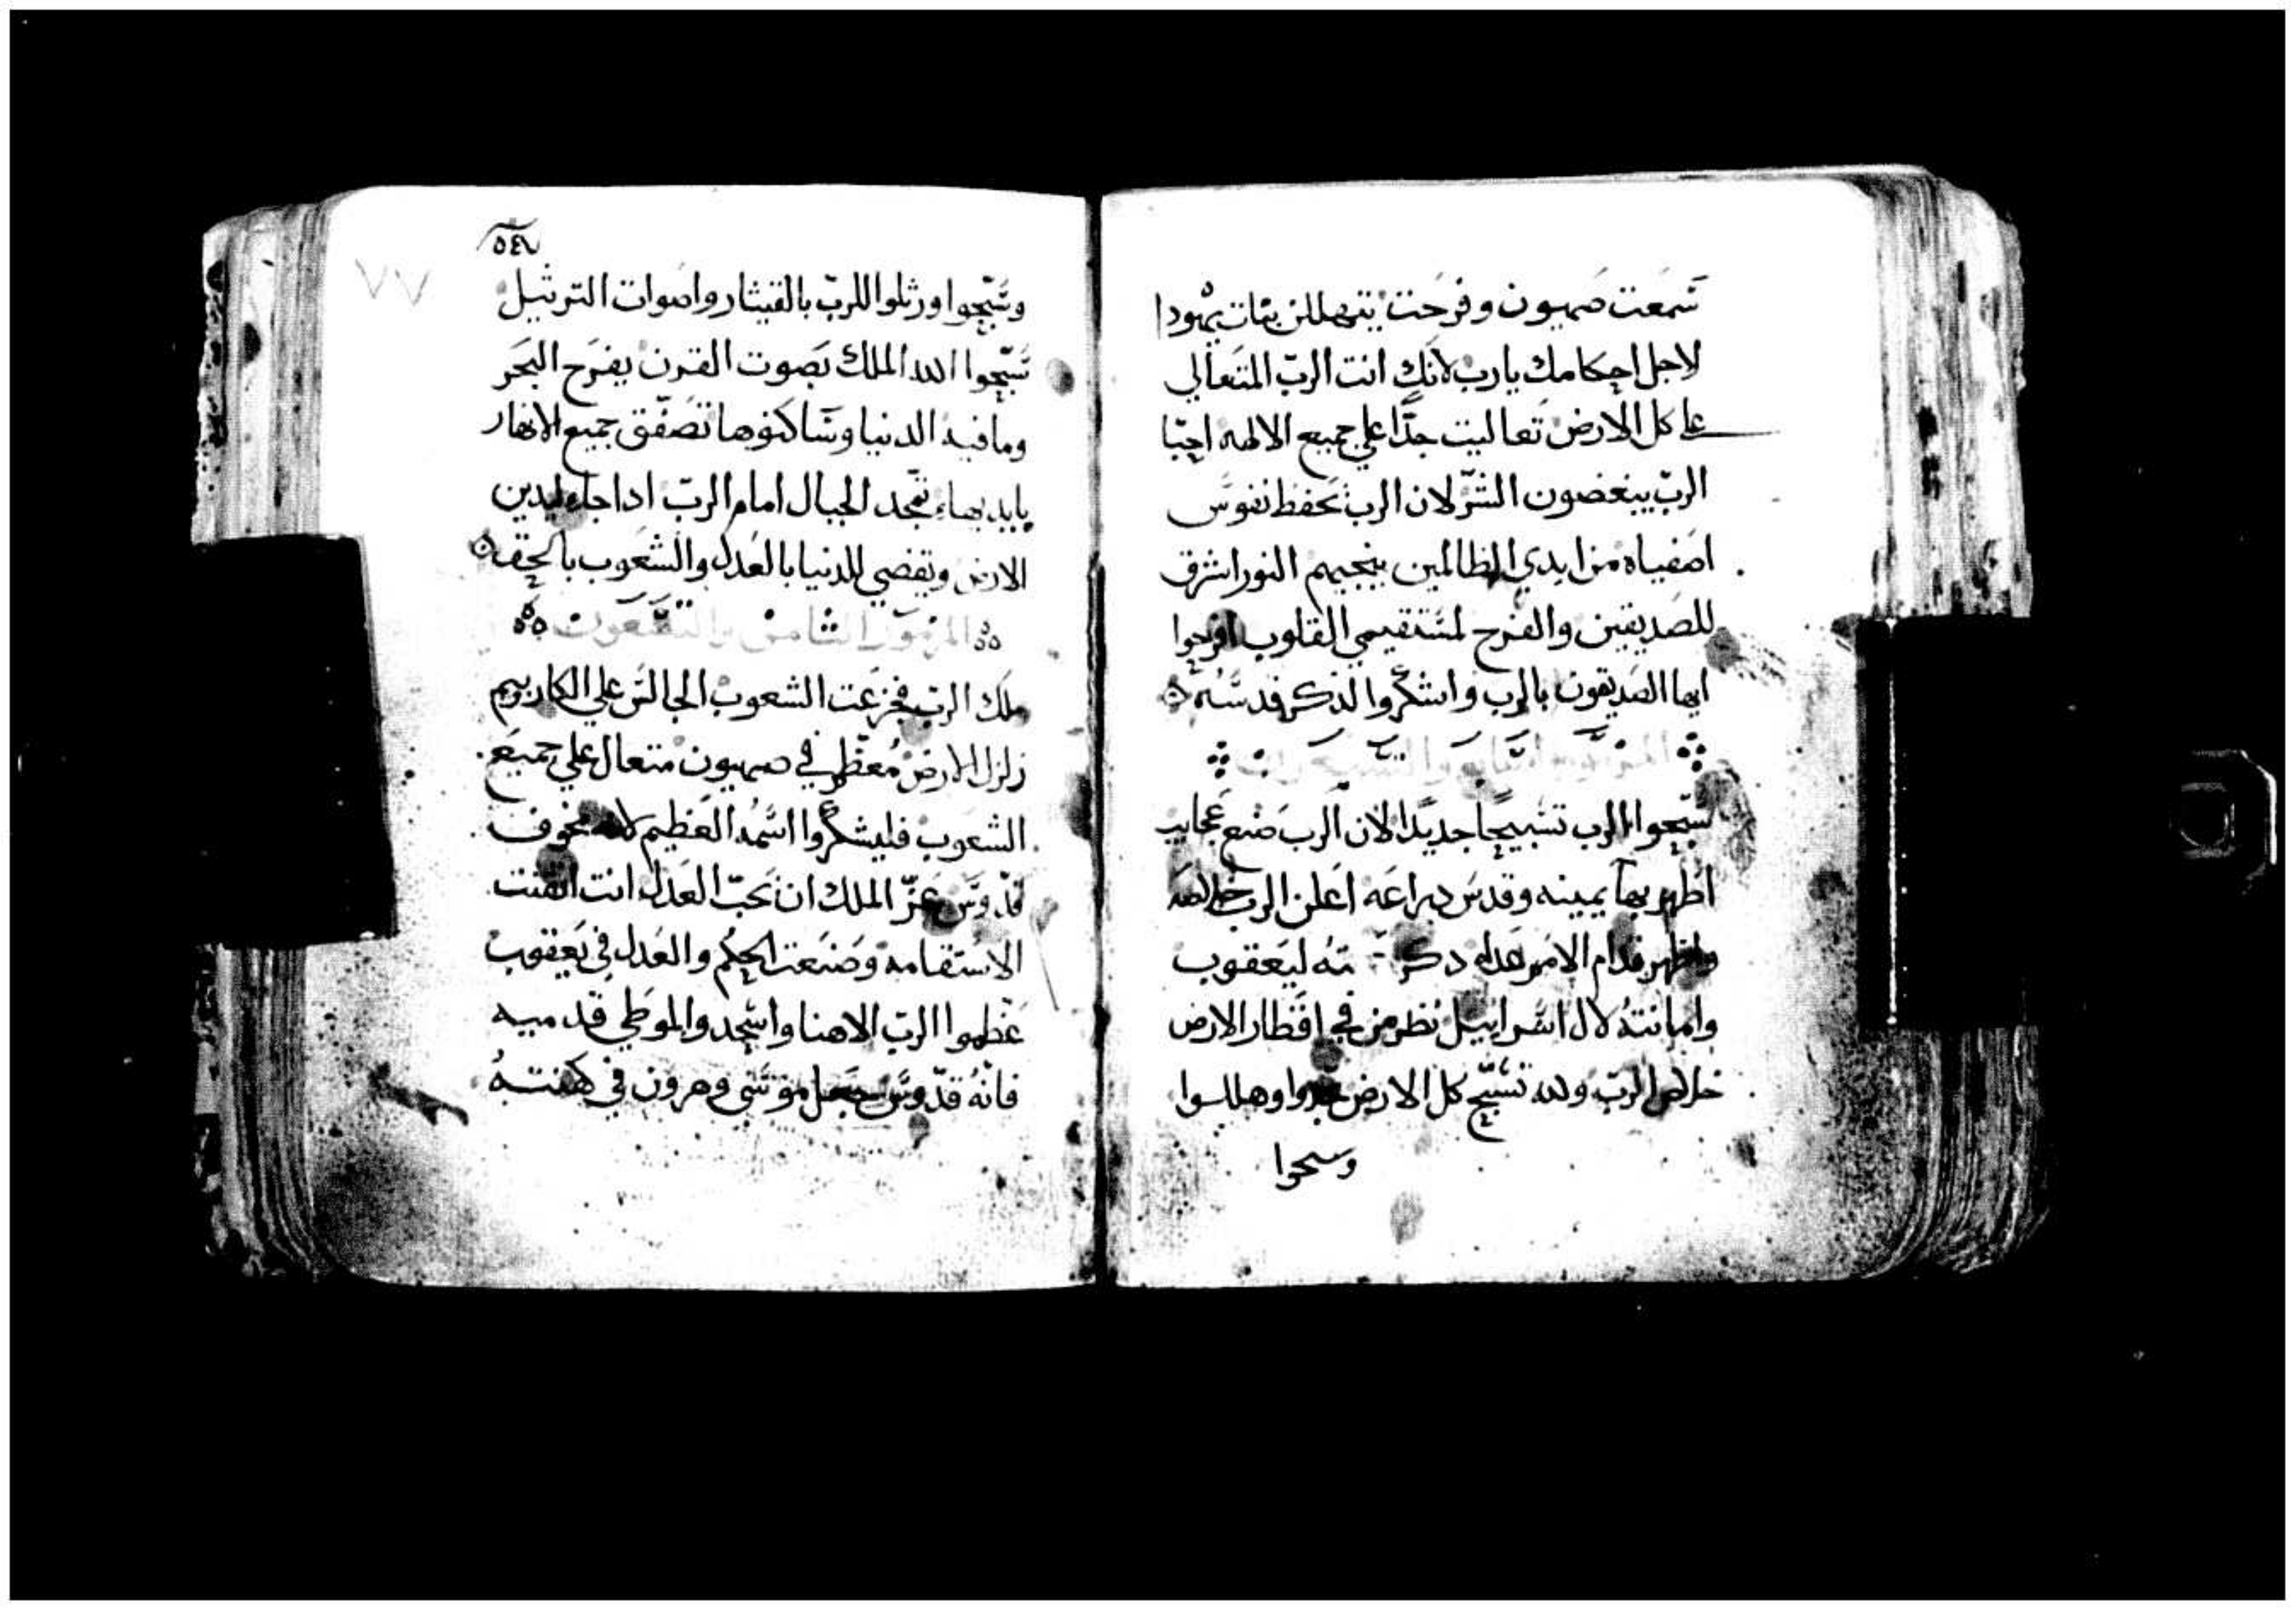 سَمَعت صَهيون وفرحَت يتهللن بنات يهودا
لاجل احكامك يارب لانك انت الربّ المتعالي
علي كل الارض تعاليت جدًّا علي جميع الالهه احبّا
الربّ يبغضون الشرّ لان الرب يحفظ نفوس
اصفياه من ايدي الظالمين ينجيهم النور اشرق
للصديقين والفرح لمستقيمي القلوب افرحوا
ايها الصديقون بالرب واشكروا لذكر قدسُه
المزمور السابع والتسعون
سبّحوا الرب تسبيحًا جديدًا لان الرب صنع عجايب
اظهر بها يمينه وقدس دراعه اعلن الرب خلاصَه
واظهر قدام الامم عدله دكر ته ليعقوب
وامانته لال اسراييل نظر من في اقطار الارض
خلاص الرب ولله تسبّح كل الارض وهللوا
وسبحوا
٥٤٨
٧٧
وسَبّحوا ورتلوا للربّ بالقيثار واصوات الترتيل
سَبّحوا الله الملك بصوت القرن يفرح البحر
وما فيه الدنيا وساكنوها تصفّق جميع الانهار
بايديها تمجد الجبال امام الربّ ادا جا ليدين
الارض ويقضي للدنيا بالعدل والشعوب بالحق
المزمور الثامن والتسعون
ملك الرب فجزعت الشعوب الجالس علي الكاروبيم
زلزل الارض معظم في صهيون متعال علي جميع
الشعوب فليشكروا اسمه العظيم لانه مخوف
قدّوس عزّ الملك ان يحبّ العدل انت اتقنت
الاستقامه وصنعت الحكم والعدل في يعقوب
عظموا الربّ الاهنا واسجدوا لموطي قدميه
فانّه قدّوس موسي وهرون في كهنته